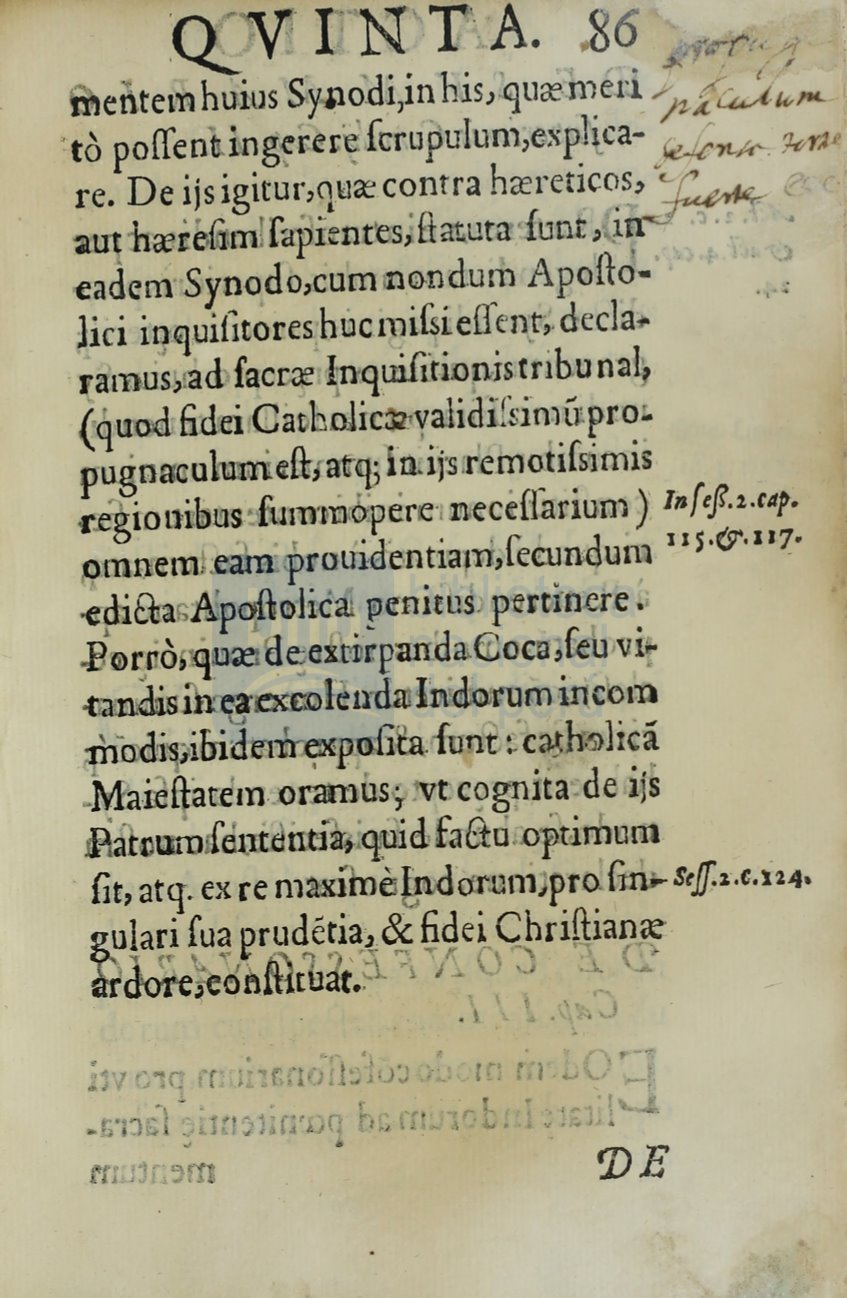 QVINTA. 86
mentem huius Synodi, in his, quæ meri
tò poſſent ingerere ſcrupulum, explica-
re. De ijs igitur, quæ contra hæreticos,
aut hæreſim ſapientes, ſtatuta ſunt, in
eadem Synodo, cum nondum Apoſto-
lici inquiſitores huc miſsi eſſent, decla-
ramus, ad ſacræ Inquiſitionis tribunal,
(quod fidei Catholicæ validiſsimũ pro-
pugnaculum eſt, atq; in ijs remotiſsimis
regionibus ſummopere neceſſarium)
In ſeſſ. 2. cap.
115. &. 117.
omnem eam prouidentiam, ſecundum
edicta Apoſtolica penitus pertinere.
Porrò, quæ de extirpanda Coca, ſeu vi-
tandis in ea excolenda Indorum incom
modis, ibidem expoſita ſunt: catholicã
Maieſtatem oramus; vt cognita de ijs
Patrum ſententia, quid factu optimum
ſit, atq. ex re maximè Indorum, pro ſin-
Seſſ. 2. c. 124.
gulari ſua prudẽtia, & fidei Chriſtianæ
ardore, conſtituat.
DE